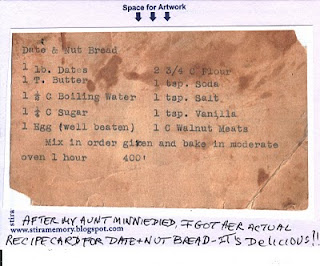 Space for Artwork
Date & Nut Bread
1 lb. Dates 2 3/4 C Flour
1 T. Butter 1 tsp. Soda
1 ½ C Boiling Water 1 tsp. Salt
1 ½ C Sugar 1 tsp. Vanilla
1 Egg (well beaten) 1 C Walnut Meats
Mix in order given and bake in moderate
oven 1 hour 400°
stira
www.stiramemory.blogspot.com
AFTER MY AUNT MINNIE DIED, I GOT HER ACTUAL
RECIPE CARD FOR DATE & NUT BREAD - IT'S DELICIOUS!!